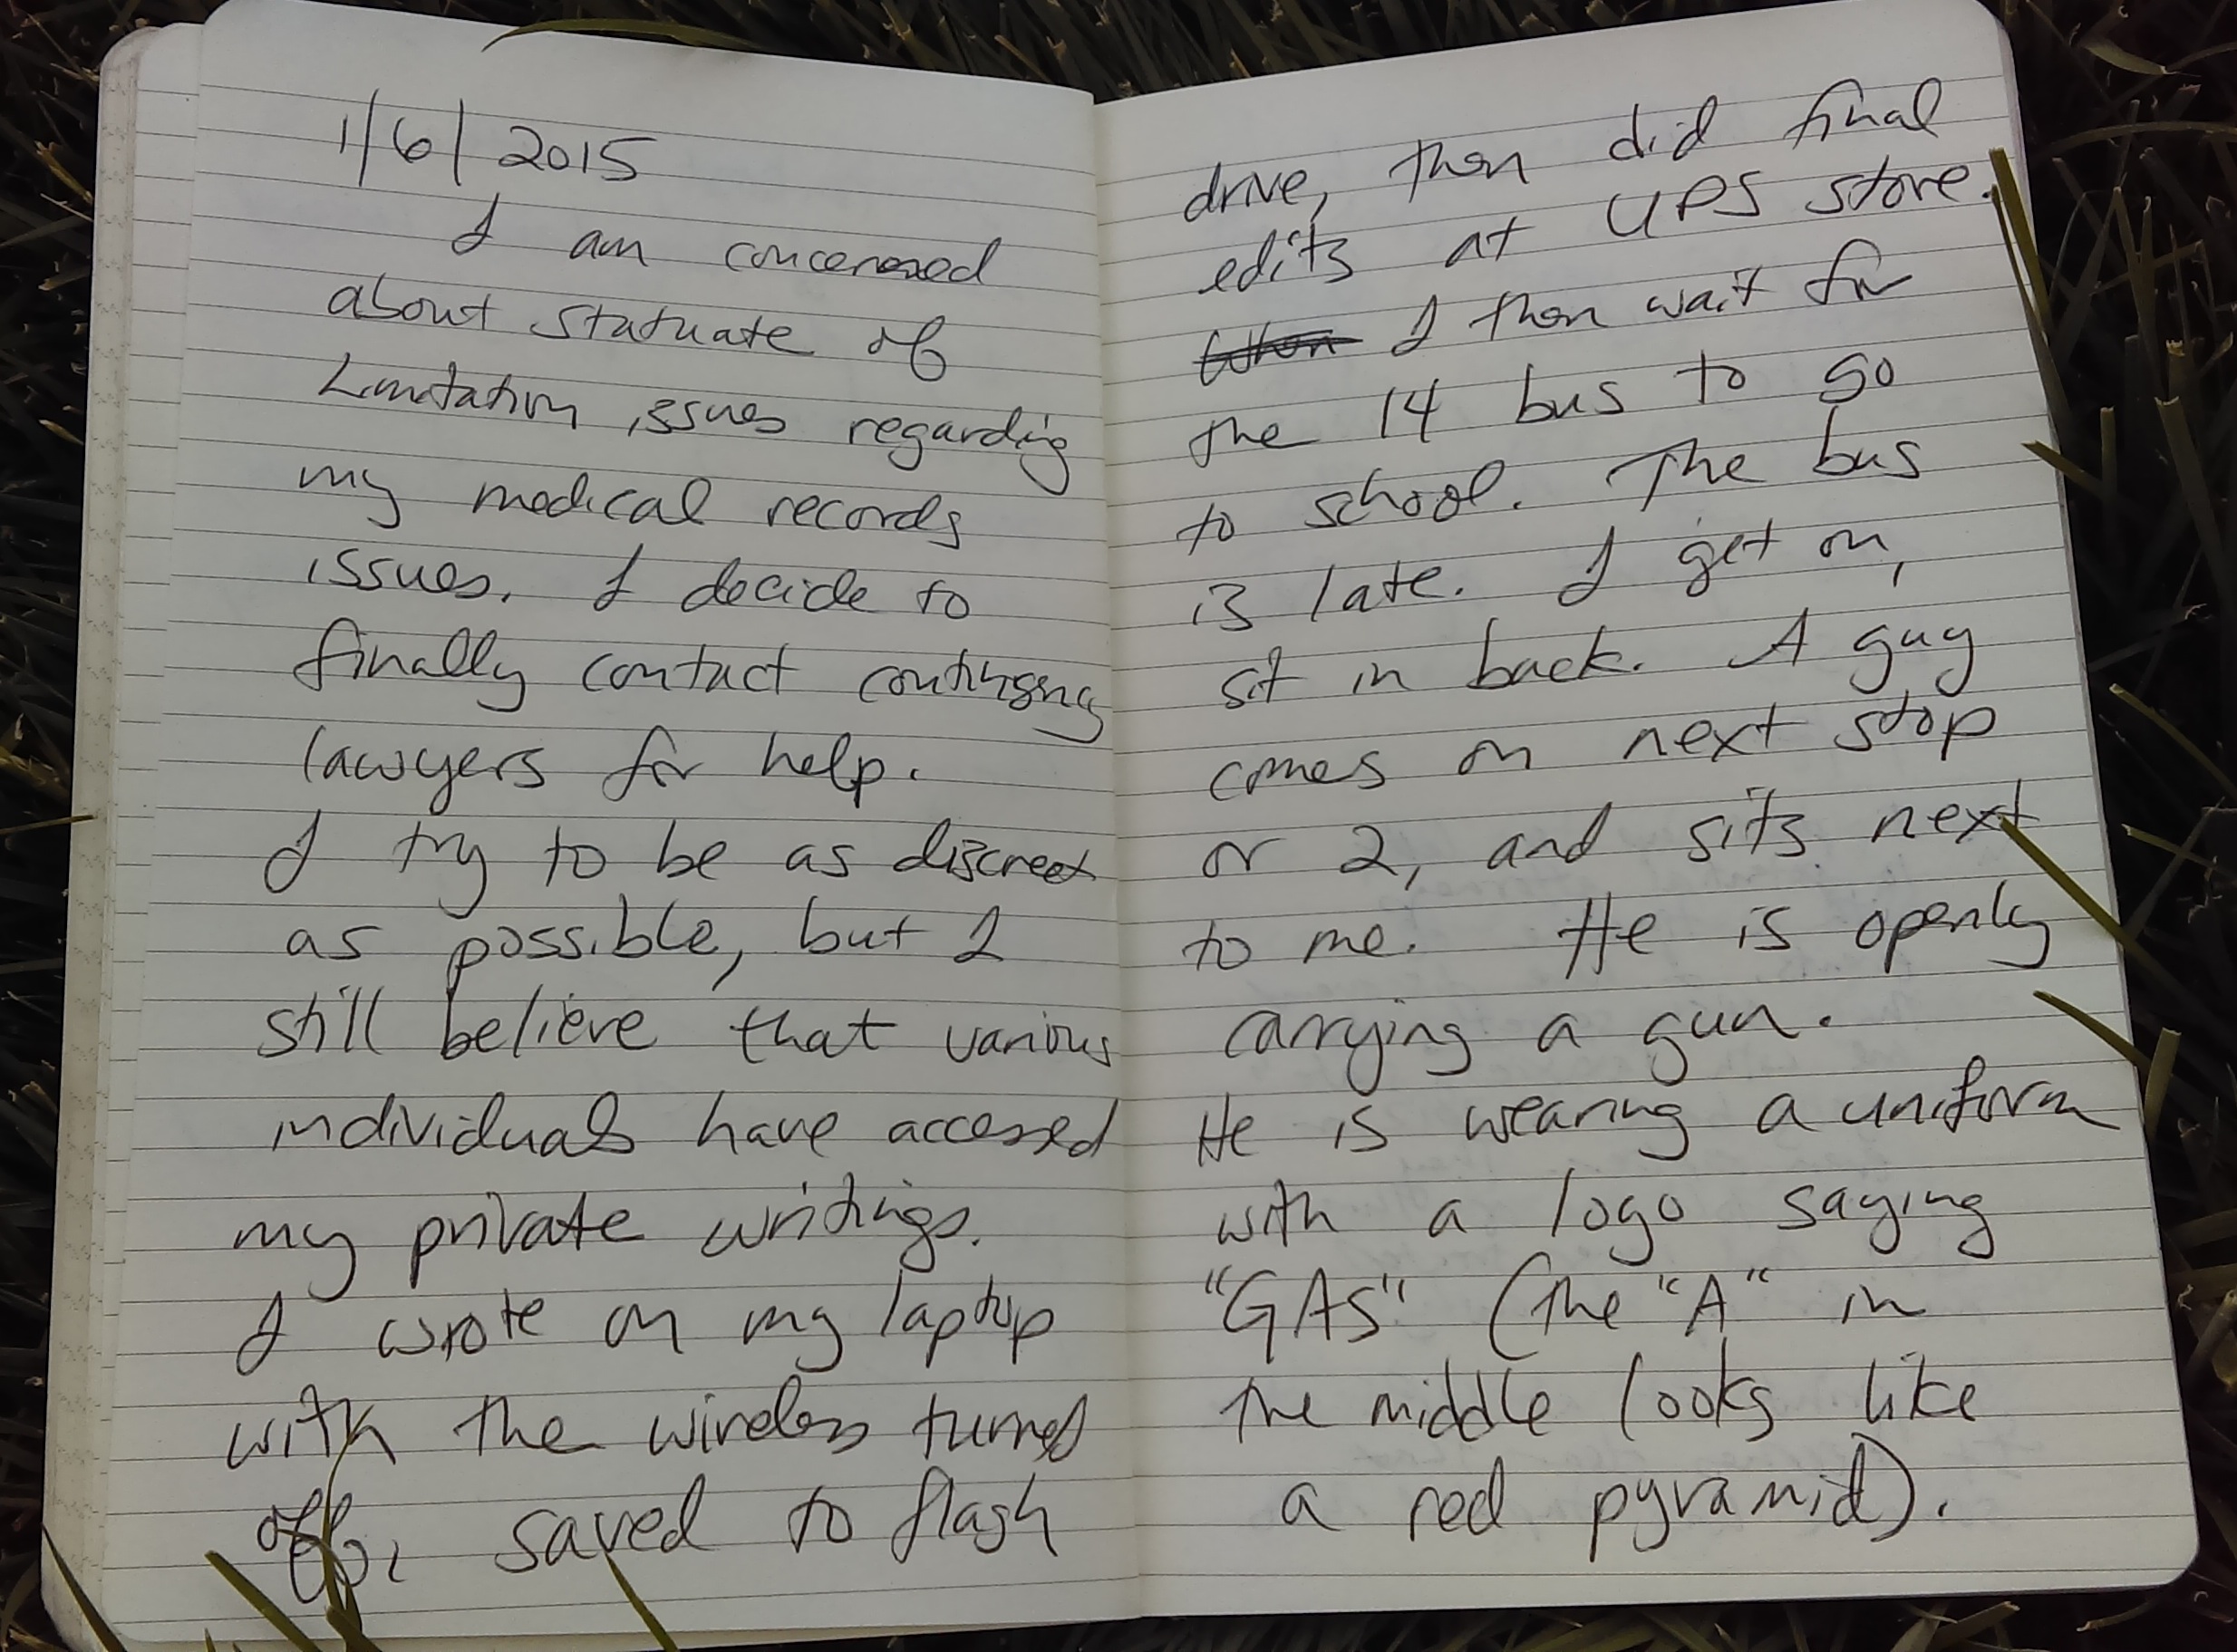 1/6/2015
I am concerened
about Statuate of
Limitation issues regarding
my medical records
issues. I decide to
finally contact contingency
lawyers for help.
I try to be as discreet
as possible, but I
still believe that various
individuals have accessed
my private writings.
I wrote on my laptop
with the wireless turned
off, saved to flash
drive, then did final
edits at UPS store.
When I then wait for
the 14 bus to go
to school. The bus
is late. I get on,
sit in back. A guy
comes on next stop
or 2, and sits next
to me. He is openly
carrying a gun.
He is wearing a uniform
with a logo saying
"GAS" (the "A" in
the middle looks like
a red pyramid).